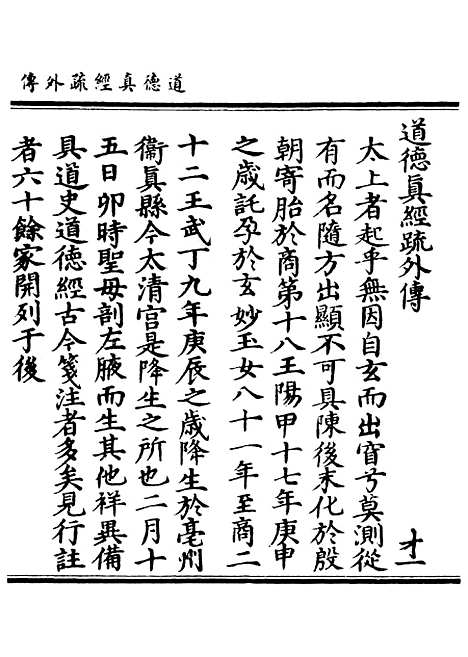 道德真經疏外傳
道德眞經疏外傳
才一
太上者起乎無因自玄而出窅兮莫測從
有而名隨方出顯不可具陳後末化於殷
朝寄胎於商第十八王陽甲十七年庚申
之歲託孕於玄妙玉女八十一年至商二
十二王武丁九年庚辰之歲降生於亳州
衞真縣今太清宫是降生之所也二月十
五日卯時聖母剖左腋而生其他祥異備
具道史道德經古今箋注者多矣見行註
者六十餘家開列于後